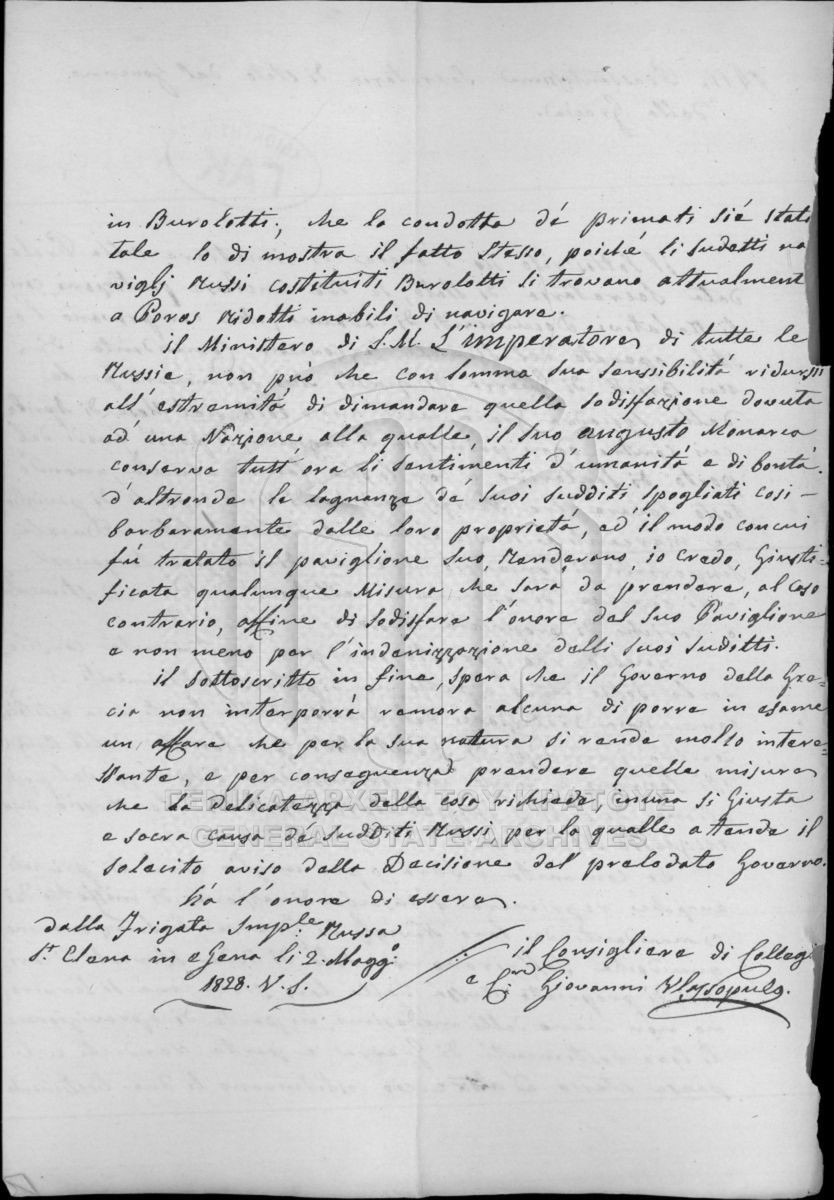 in Burolotti; che la condotta dé primati sié stata
tale lo di mostra il fatto stesso, poiché li sudetti na
viglj Russi costituiti Burolotti si trovano attualment
a Poros Ridotti inabili di navigare.
il Ministero di S.M. L'imperatore di tutte le
Russie, non può che con somma sua senssibilitá ridursi
all'estremitá di dimandare quella sodisfazione dovuta
ad' una Nazione alla qualle, il suo augusto Monarca
conserva tutt'ora li sentimenti d'umanitá e di bontá.
d'altronde le lagnanze dé suoi sudditi spogliati cosi-
barbaramente dalle loro proprietá, ed' il modo concui
fú tratato il paviglione suo, Renderano, io credo, Giusti-
ficata qualunque Misura, che sará da prendere, al caso
contrario, affine di sodisfare l'onore del suo Paviglione
e non meno per l'indenizzazione delli suoi suditti.
il sottoscritto in fine, spera che il Governo della Gre-
cia non interporrà remora alcuna di porre in esame
un, affare che per la sua natura si rende molto interes-
sante, e per conseguenza prendere quelle misure
che la delicatezza della cosa richiede, inuna si Giusta
e sacra causa dé sudditi Russi per la qualle attende il
solecito aviso della Decisione del' prelodato Governo.
há l'onore di essere.
dalla Frigata Imple. Russa
St. Elena in eGena li 2. Maggo.
1828. V.S.
il Consigliere di Collegi
e Cr. Giovanni Wlassopulo.
ΓΕΝΙΚΑ ΑΡΧΕΙΑ ΤΟΥ ΚΡΑΤΟΥΣ
GENERAL STATE ARCHIVES